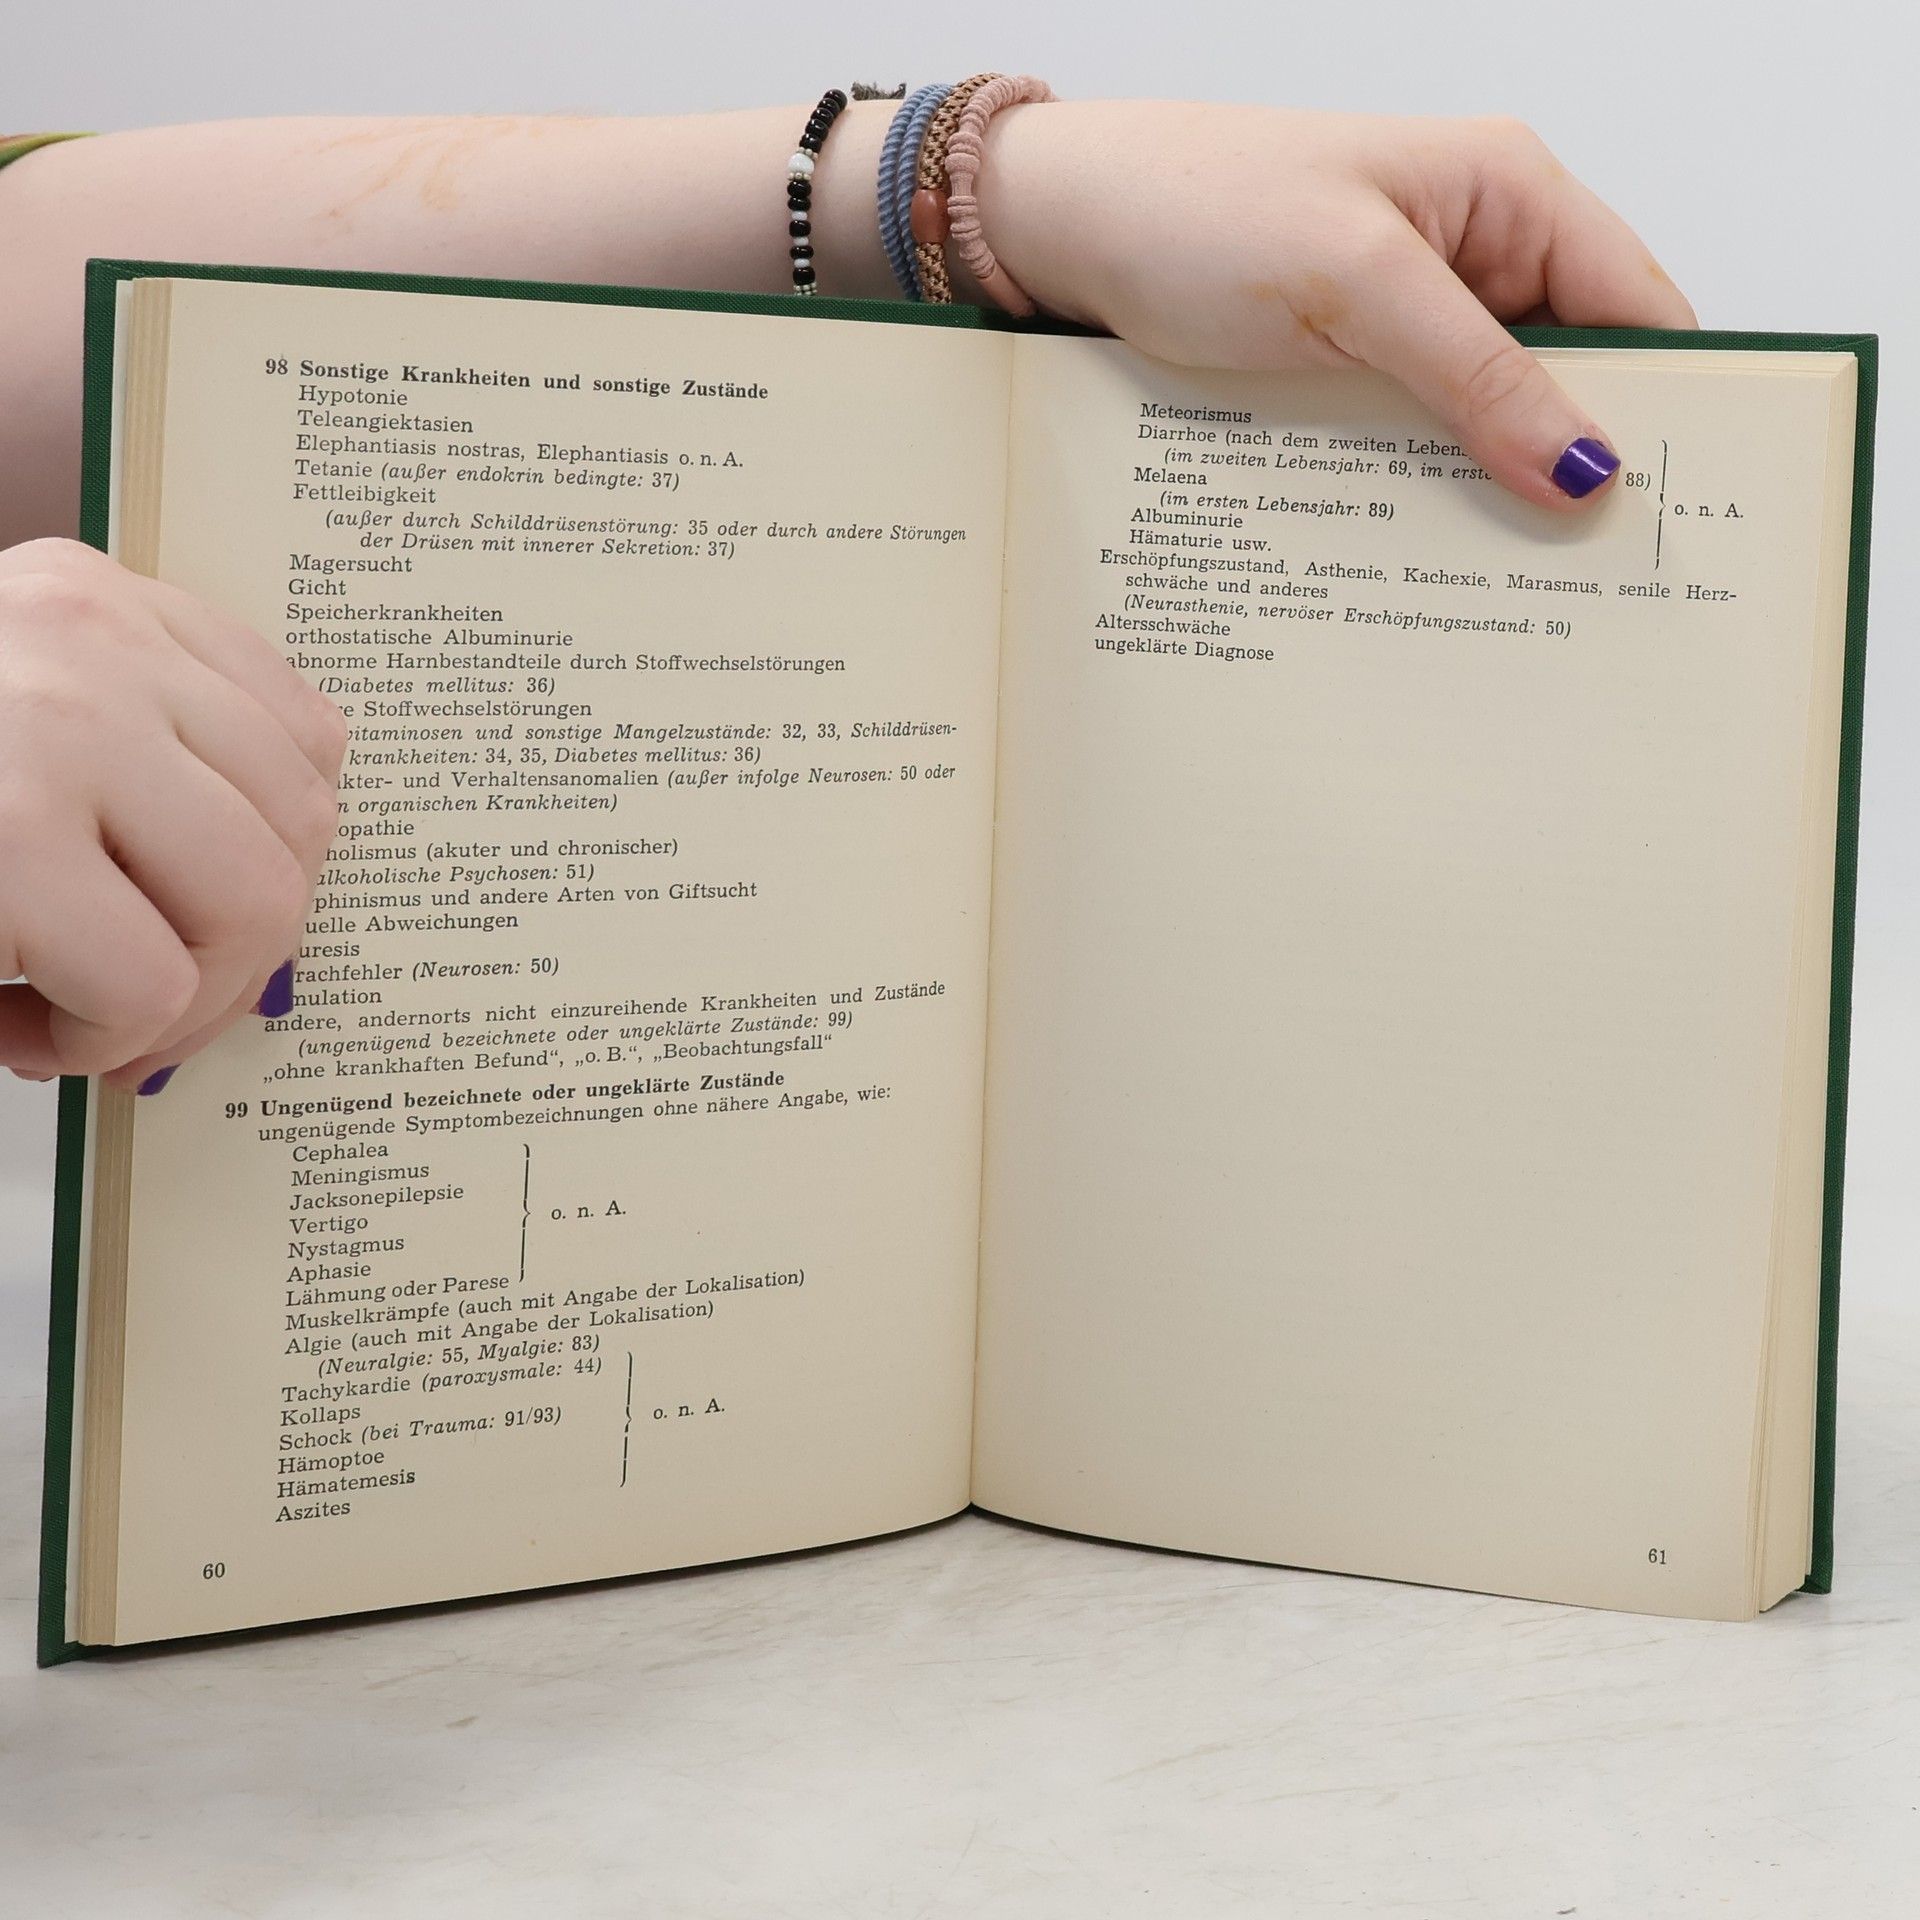 98 Sonstige Krankheiten und sonstige Zustände
Hypotonie
Teleangiektasien
Elephantiasis nostras, Elephantiasis o. n. A.
Tetanie (außer endokrin bedingte: 37)
Fettleibigkeit
(außer durch Schilddrüsenstörung: 35 oder durch andere Störungen
der Drüsen mit innerer Sekretion: 37)
Magersucht
Gicht
Speicherkrankheiten
orthostatische Albuminurie
abnorme Harnbestandteile durch Stoffwechselstörungen
(Diabetes mellitus: 36)
Stoffwechselstörungen
und sonstige Mangelzustände: 32, 33, Schilddrüsen-
krankheiten: 34, 35, Diabetes mellitus: 36)
und Verhaltensanomalien (außer infolge Neurosen: 50 oder
organischen Krankheiten)
(akuter und chronischer)
alkoholische Psychosen: 51)
und andere Arten von Giftsucht
Abweichungen
(Neurosen: 50)
andere, andernorts nicht einzureihende Krankheiten und Zustände
(ungenügend bezeichnete oder ungeklärte Zustände: 99)
„ohne krankhaften Befund“, „o. B.“, „Beobachtungsfall“
99 Ungenügend bezeichnete oder ungeklärte Zustände
ungenügende Symptombezeichnungen ohne nähere Angabe, wie:
Cephalea
Meningismus
Jacksonepilepsie
Vertigo o. n. A.
Nystagmus
Aphasie
Lähmung oder Parese
Muskelkrämpfe (auch mit Angabe der Lokalisation)
Algie (auch mit Angabe der Lokalisation)
(Neuralgie: 55, Myalgie: 83)
Tachykardie (paroxysmale: 44)
Kollaps o. n. A.
Schock (bei Trauma: 91/93)
Hämoptoe
Hämatemesis
Aszites
60
Meteorismus
Diarrhoe (nach dem zweiten
(im zweiten Lebensjahr: 69, im 88)
Melaena o. n. A.
(im ersten Lebensjahr: 89)
Albuminurie
Hämaturie usw.
Erschöpfungszustand, Asthenie, Kachexie, Marasmus, senile Herz-
schwäche und anderes
(Neurasthenie, nervöser Erschöpfungszustand: 50)
Altersschwäche
ungeklärte Diagnose
61